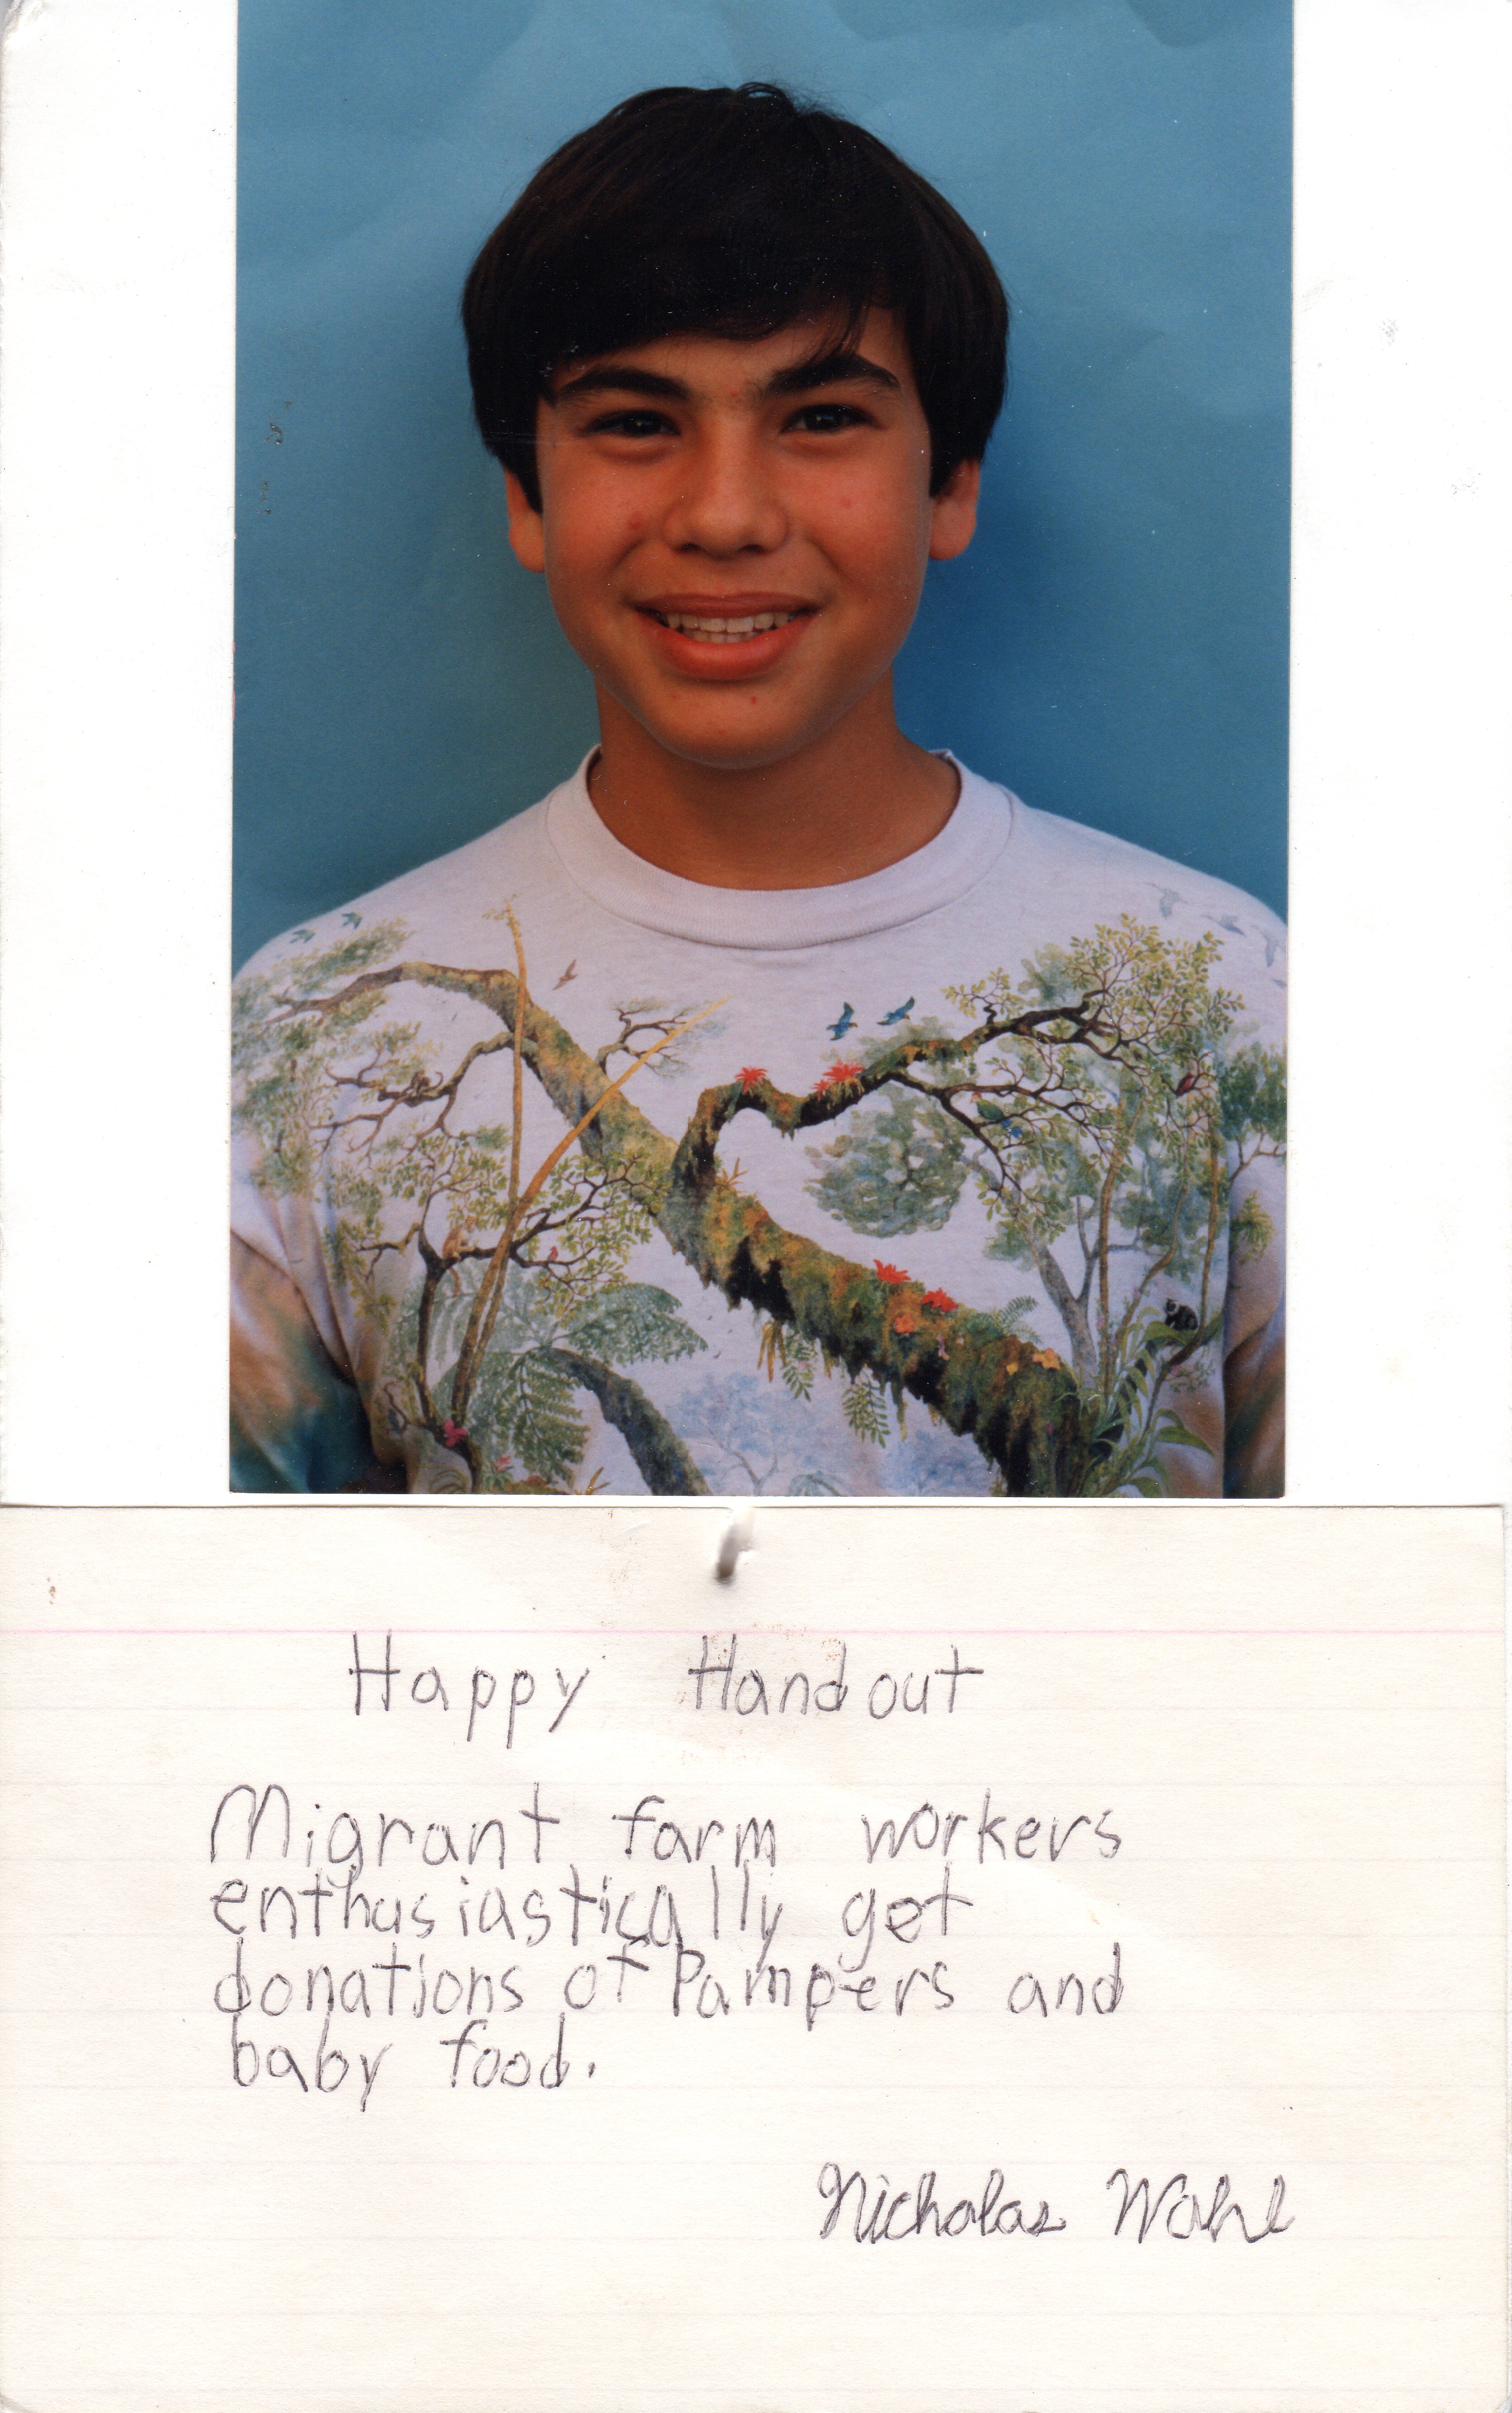 Happy Handout
Migrant farm workers
enthusiastically get
donations of Pampers and
baby food.
Nicholas Wahl